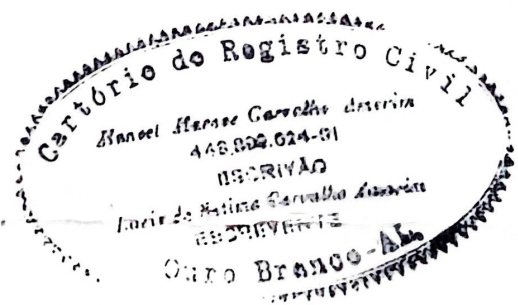 Cartório do Registro Civil
Manoel Carvalho Amorim
ESCRIVÃO
Lucia de Fatima Carvalho Amorim
ESCREVENTE
Ouro Branco-AL